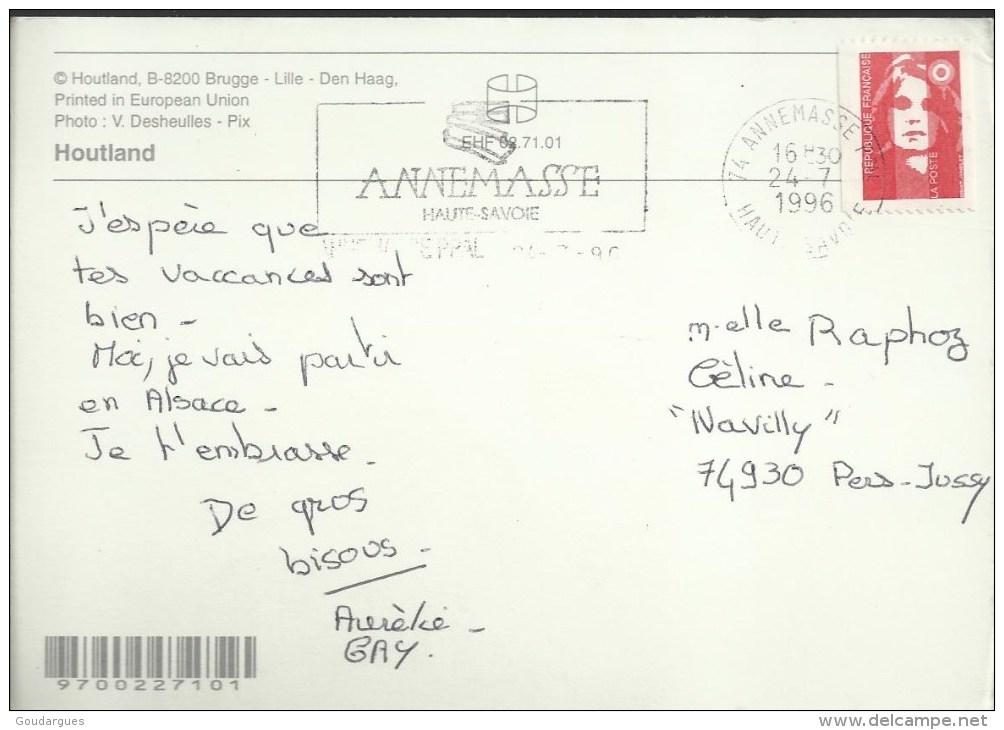 © Houtland, B-8200 Brugge - Lille - Den Haag,
Printed in European Union
Photo : V. Desheulles - Pix
Houtland
EHF 02.71.01
ANNEMASSE
HAUTE-SAVOIE
74 ANNEMASSE
16 H30
24-7
1996
HAUTE SAVOIE
RÉPUBLIQUE FRANÇAISE
LA POSTE
J'espère que
tes vaccances sont
bien -
Moi, je vais partir
en Alsace -
Je t'embrasse -
De gros
bisous -
Aurélie -
GAY.
m.elle Raphoz
Céline -
"Navilly"
74930 Pers-Jussy
9700227101
Goudargues
delcampe.net